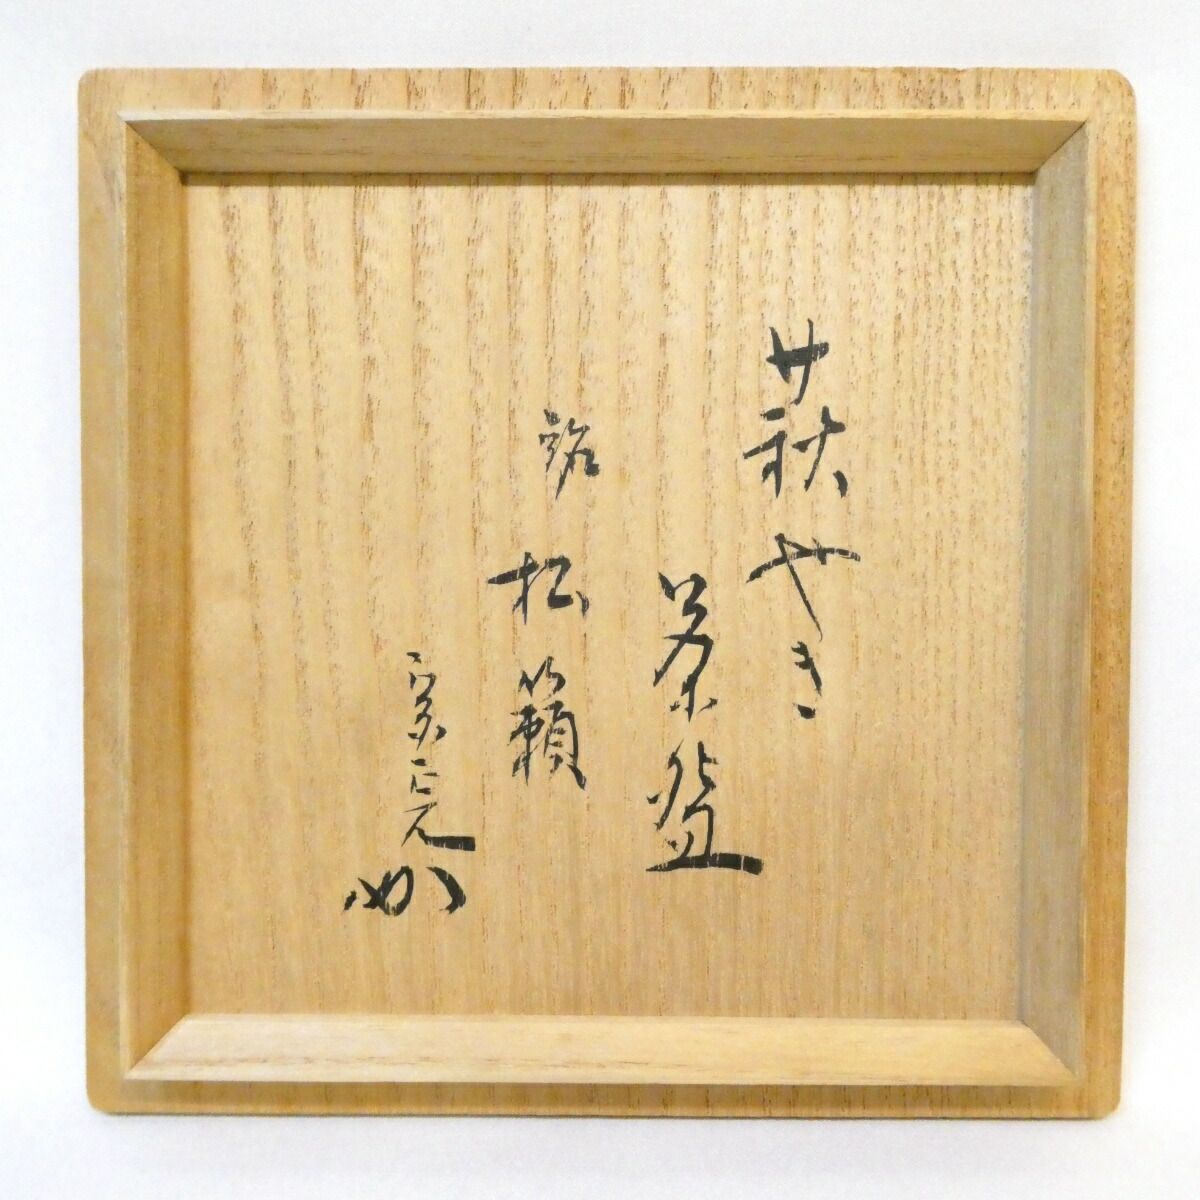 萩やき
茶盌
銘 松籟
宗完